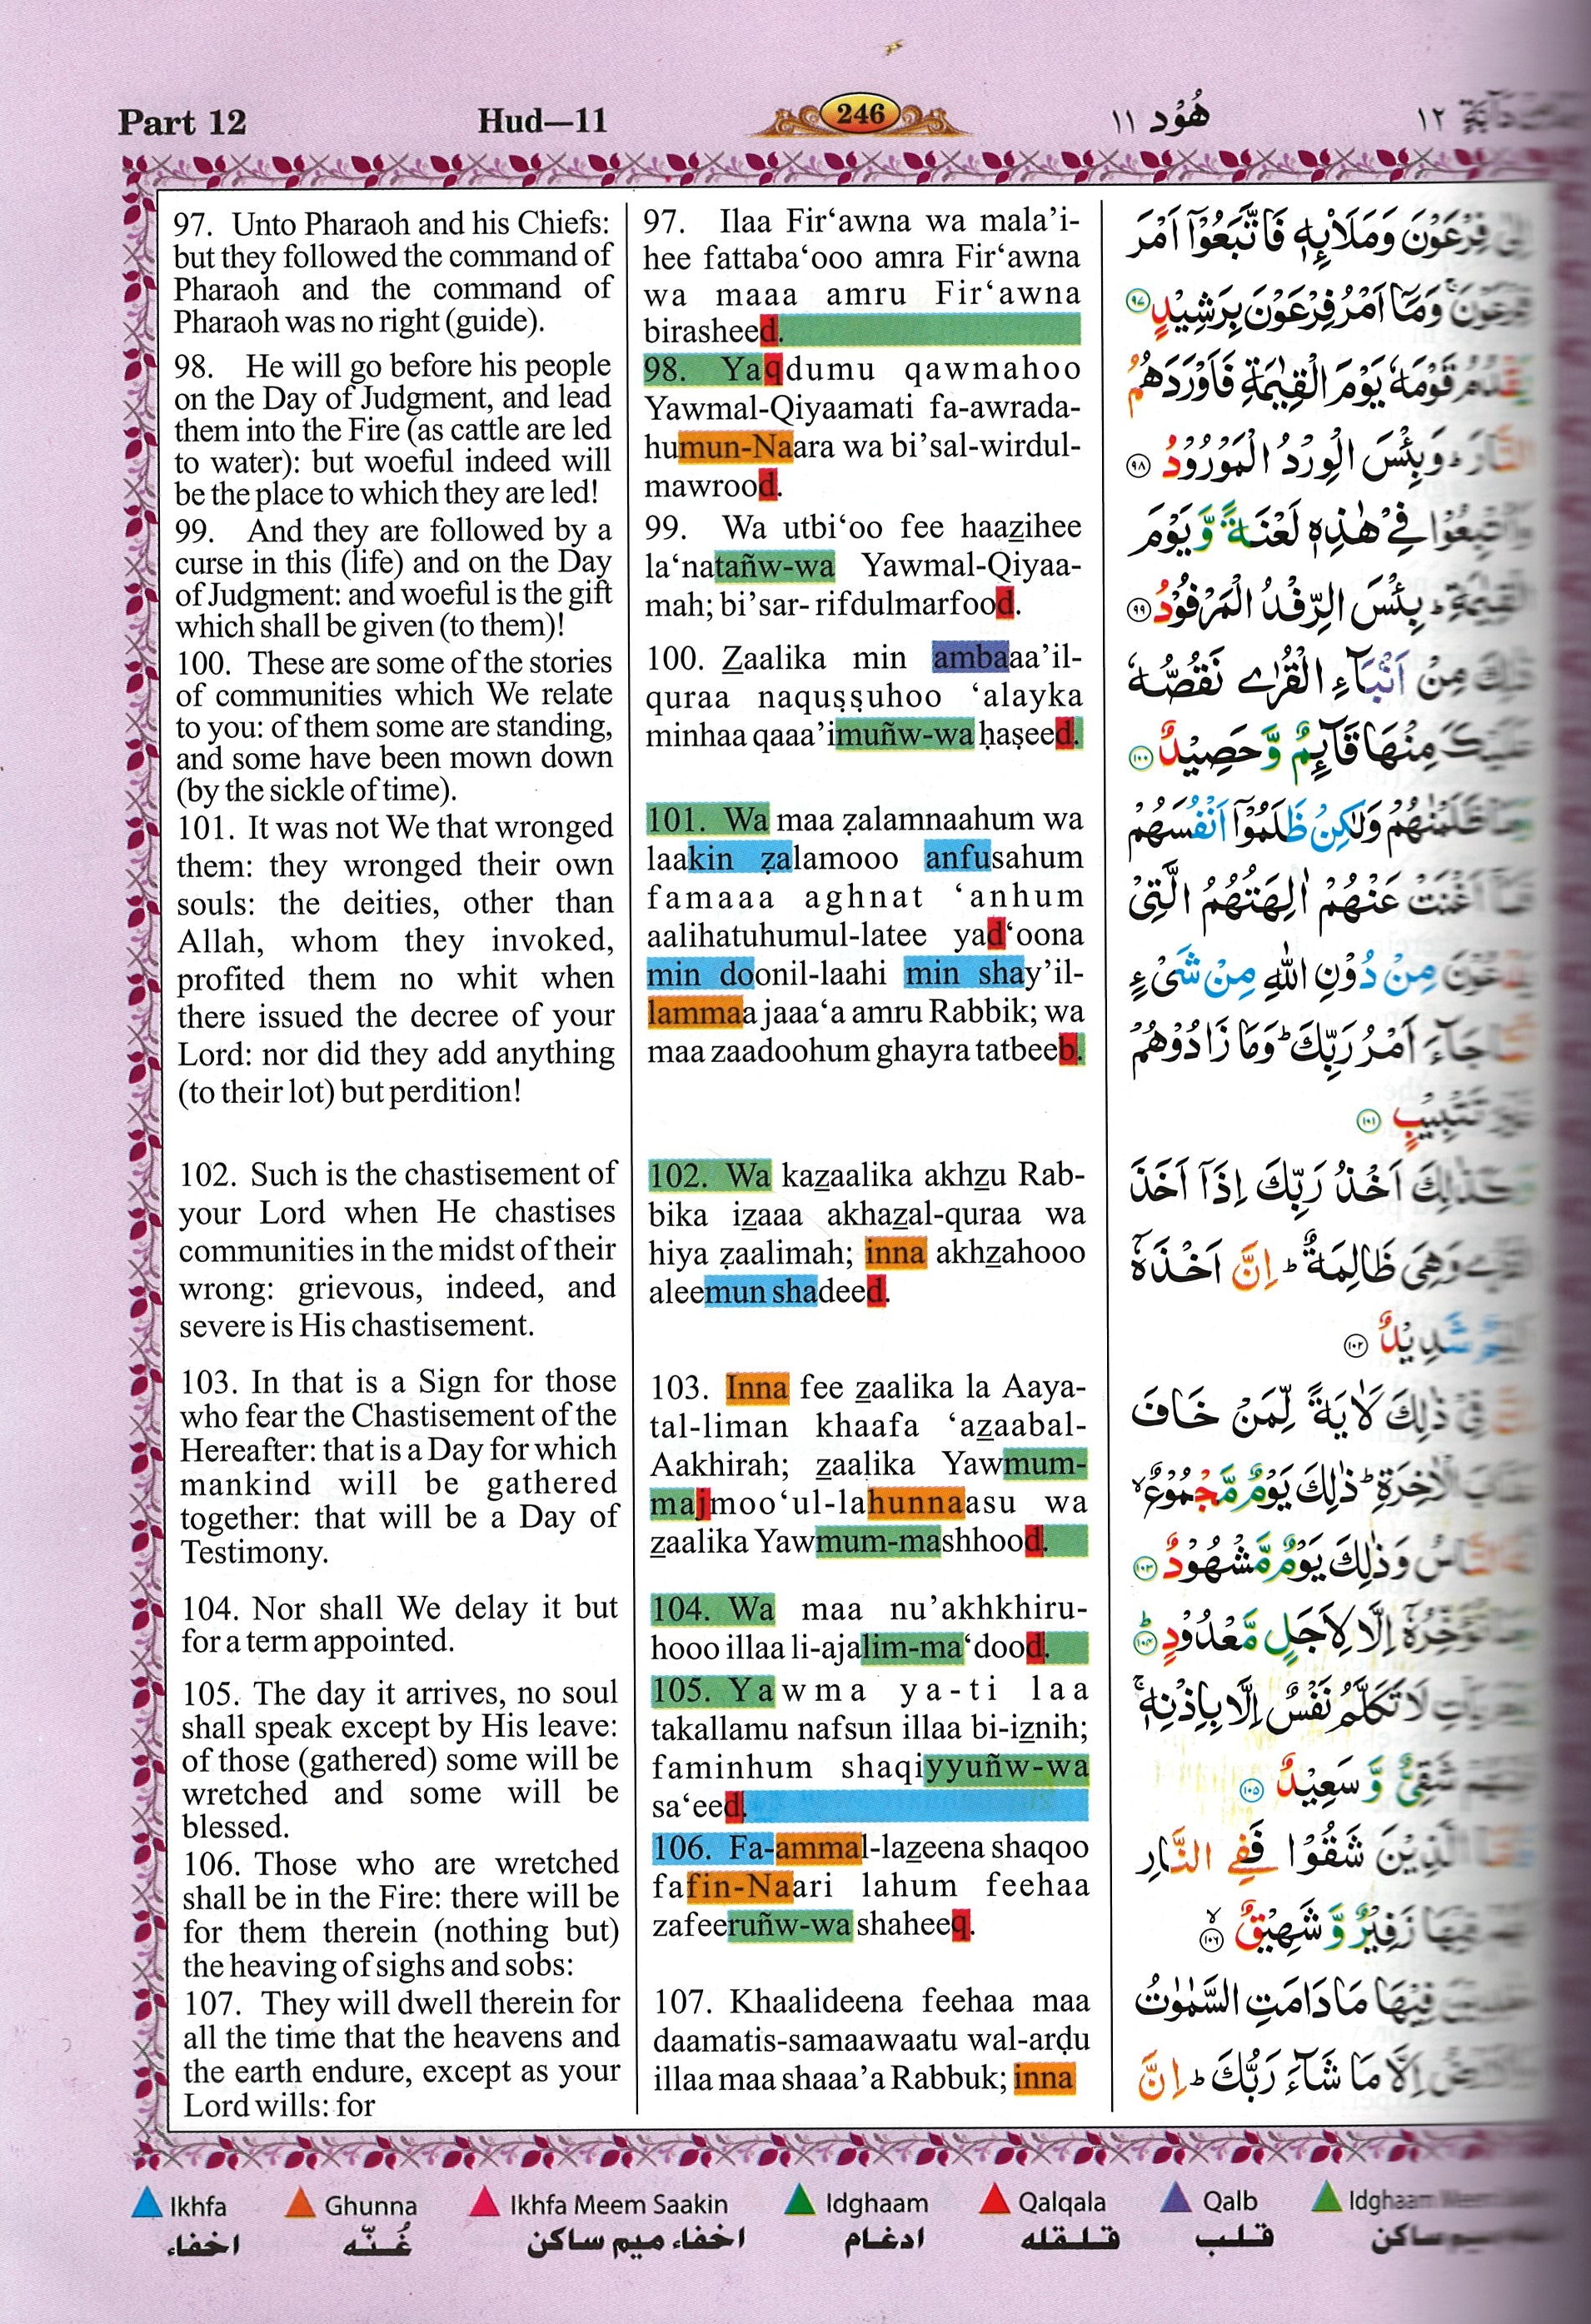 Part 12
Hud—11
246
هُوْد ١١
١٢
97. Unto Pharaoh and his Chiefs:
but they followed the command of
Pharaoh and the command of
Pharaoh was no right (guide).
98. He will go before his people
on the Day of Judgment, and lead
them into the Fire (as cattle are led
to water): but woeful indeed will
be the place to which they are led!
99. And they are followed by a
curse in this (life) and on the Day
of Judgment: and woeful is the gift
which shall be given (to them)!
100. These are some of the stories
of communities which We relate
to you: of them some are standing,
and some have been mown down
(by the sickle of time).
101. It was not We that wronged
them: they wronged their own
souls: the deities, other than
Allah, whom they invoked,
profited them no whit when
there issued the decree of your
Lord: nor did they add anything
(to their lot) but perdition!
102. Such is the chastisement of
your Lord when He chastises
communities in the midst of their
wrong: grievous, indeed, and
severe is His chastisement.
103. In that is a Sign for those
who fear the Chastisement of the
Hereafter: that is a Day for which
mankind will be gathered
together: that will be a Day of
Testimony.
104. Nor shall We delay it but
for a term appointed.
105. The day it arrives, no soul
shall speak except by His leave:
of those (gathered) some will be
wretched and some will be
blessed.
106. Those who are wretched
shall be in the Fire: there will be
for them therein (nothing but)
the heaving of sighs and sobs:
107. They will dwell therein for
all the time that the heavens and
the earth endure, except as your
Lord wills: for
97. Ilaa Fir‘awna wa mala’i-
hee fattaba‘ooo amra Fir‘awna
wa maaa amru Fir‘awna
birasheed.
98. Yaqdumu qawmahoo
Yawmal-Qiyaamati fa-awrada-
humun-Naara wa bi’sal-wirdul-
mawrood.
99. Wa utbi‘oo fee haazihee
la‘natañw-wa Yawmal-Qiyaa-
mah; bi’sar- rifdulmarfood.
100. Zaalika min ambaaa’il-
quraa naquṣṣuhoo ‘alayka
minhaa qaaa’imuñw-wa ḥaṣeed.
101. Wa maa ẓalamnaahum wa
laakin ẓalamooo anfusahum
famaaa aghnat ‘anhum
aalihatuhumul-latee yad‘oona
min doonil-laahi min shay’il-
lammaa jaaa‘a amru Rabbik; wa
maa zaadoohum ghayra tatbeeb.
102. Wa kazaalika akhzu Rab-
bika izaaa akhazal-quraa wa
hiya ẓaalimah; inna akhzahooo
aleemun shadeed.
103. Inna fee zaalika la Aaya-
tal-liman khaafa ‘azaabal-
Aakhirah; zaalika Yawmum-
majmoo‘ul-lahunnaasu wa
zaalika Yawmum-mashhood.
104. Wa maa nu’akhkhiru-
hooo illaa li-ajalim-ma‘dood.
105. Yawma ya-ti laa
takallamu nafsun illaa bi-iznih;
faminhum shaqiyyuñw-wa
sa‘eed.
106. Fa-ammal-lazeena shaqoo
fafin-Naari lahum feehaa
zafeeruñw-wa shaheeq.
107. Khaalideena feehaa maa
daamatis-samaawaatu wal-arḍu
illaa maa shaaa’a Rabbuk; inna
اِلٰى فِرْعَوْنَ وَمَلَا۟ىِٕهٖ فَاتَّبَعُوْۤا اَمْرَ
فِرْعَوْنَ ۚ وَمَاۤ اَمْرُ فِرْعَوْنَ بِرَشِيْدٍ ۹۷
يَقْدُمُ قَوْمَهٗ يَوْمَ الْقِيٰمَةِ فَاَوْرَدَهُمُ
النَّارَ ؕ وَبِئْسَ الْوِرْدُ الْمَوْرُوْدُ ۹۸
وَاُتْبِعُوْا فِيْ هٰذِهٖ لَعْنَةً وَّيَوْمَ
الْقِيٰمَةِ ؕ بِئْسَ الرِّفْدُ الْمَرْفُوْدُ ۹۹
ذٰلِكَ مِنْ اَنْۢبَآءِ الْقُرٰى نَقُصُّهٗ
عَلَيْكَ مِنْهَا قَآئِمٌ وَّحَصِيْدٌ ۱۰۰
وَمَا ظَلَمْنٰهُمْ وَلٰكِنْ ظَلَمُوْۤا اَنْفُسَهُمْ
فَمَاۤ اَغْنَتْ عَنْهُمْ اٰلِهَتُهُمُ الَّتِيْ
يَدْعُوْنَ مِنْ دُوْنِ اللّٰهِ مِنْ شَيْءٍ
لَّمَّا جَآءَ اَمْرُ رَبِّكَ ؕ وَمَا زَادُوْهُمْ
غَيْرَ تَتْبِيْبٍ ۱۰۱
وَكَذٰلِكَ اَخْذُ رَبِّكَ اِذَاۤ اَخَذَ
الْقُرٰى وَهِيَ ظَالِمَةٌ ؕ اِنَّ اَخْذَهٗۤ
اَلِيْمٌ شَدِيْدٌ ۱۰۲
اِنَّ فِيْ ذٰلِكَ لَاٰيَةً لِّمَنْ خَافَ
عَذَابَ الْاٰخِرَةِ ؕ ذٰلِكَ يَوْمٌ مَّجْمُوْعٌ ۙ
لَّهُ النَّاسُ وَذٰلِكَ يَوْمٌ مَّشْهُوْدٌ ۱۰۳
وَمَا نُؤَخِّرُهٗۤ اِلَّا لِاَجَلٍ مَّعْدُوْدٍ ؕ ۱۰۴
يَوْمَ يَاْتِ لَا تَكَلَّمُ نَفْسٌ اِلَّا بِاِذْنِهٖ ۚ
فَمِنْهُمْ شَقِيٌّ وَّسَعِيْدٌ ۱۰۵
فَاَمَّا الَّذِيْنَ شَقُوْا فَفِي النَّارِ
لَهُمْ فِيْهَا زَفِيْرٌ وَّشَهِيْقٌ ۙ ۱۰۶
خٰلِدِيْنَ فِيْهَا مَا دَامَتِ السَّمٰوٰتُ
وَالْاَرْضُ اِلَّا مَا شَآءَ رَبُّكَ ؕ اِنَّ
Ikhfa
Ghunna
Ikhfa Meem Saakin
Idghaam
Qalqala
Qalb
Idghaam Meem
اخفاء
غُنّه
اخفاء میم ساکن
ادغام
قلقله
قلب
میم ساکن